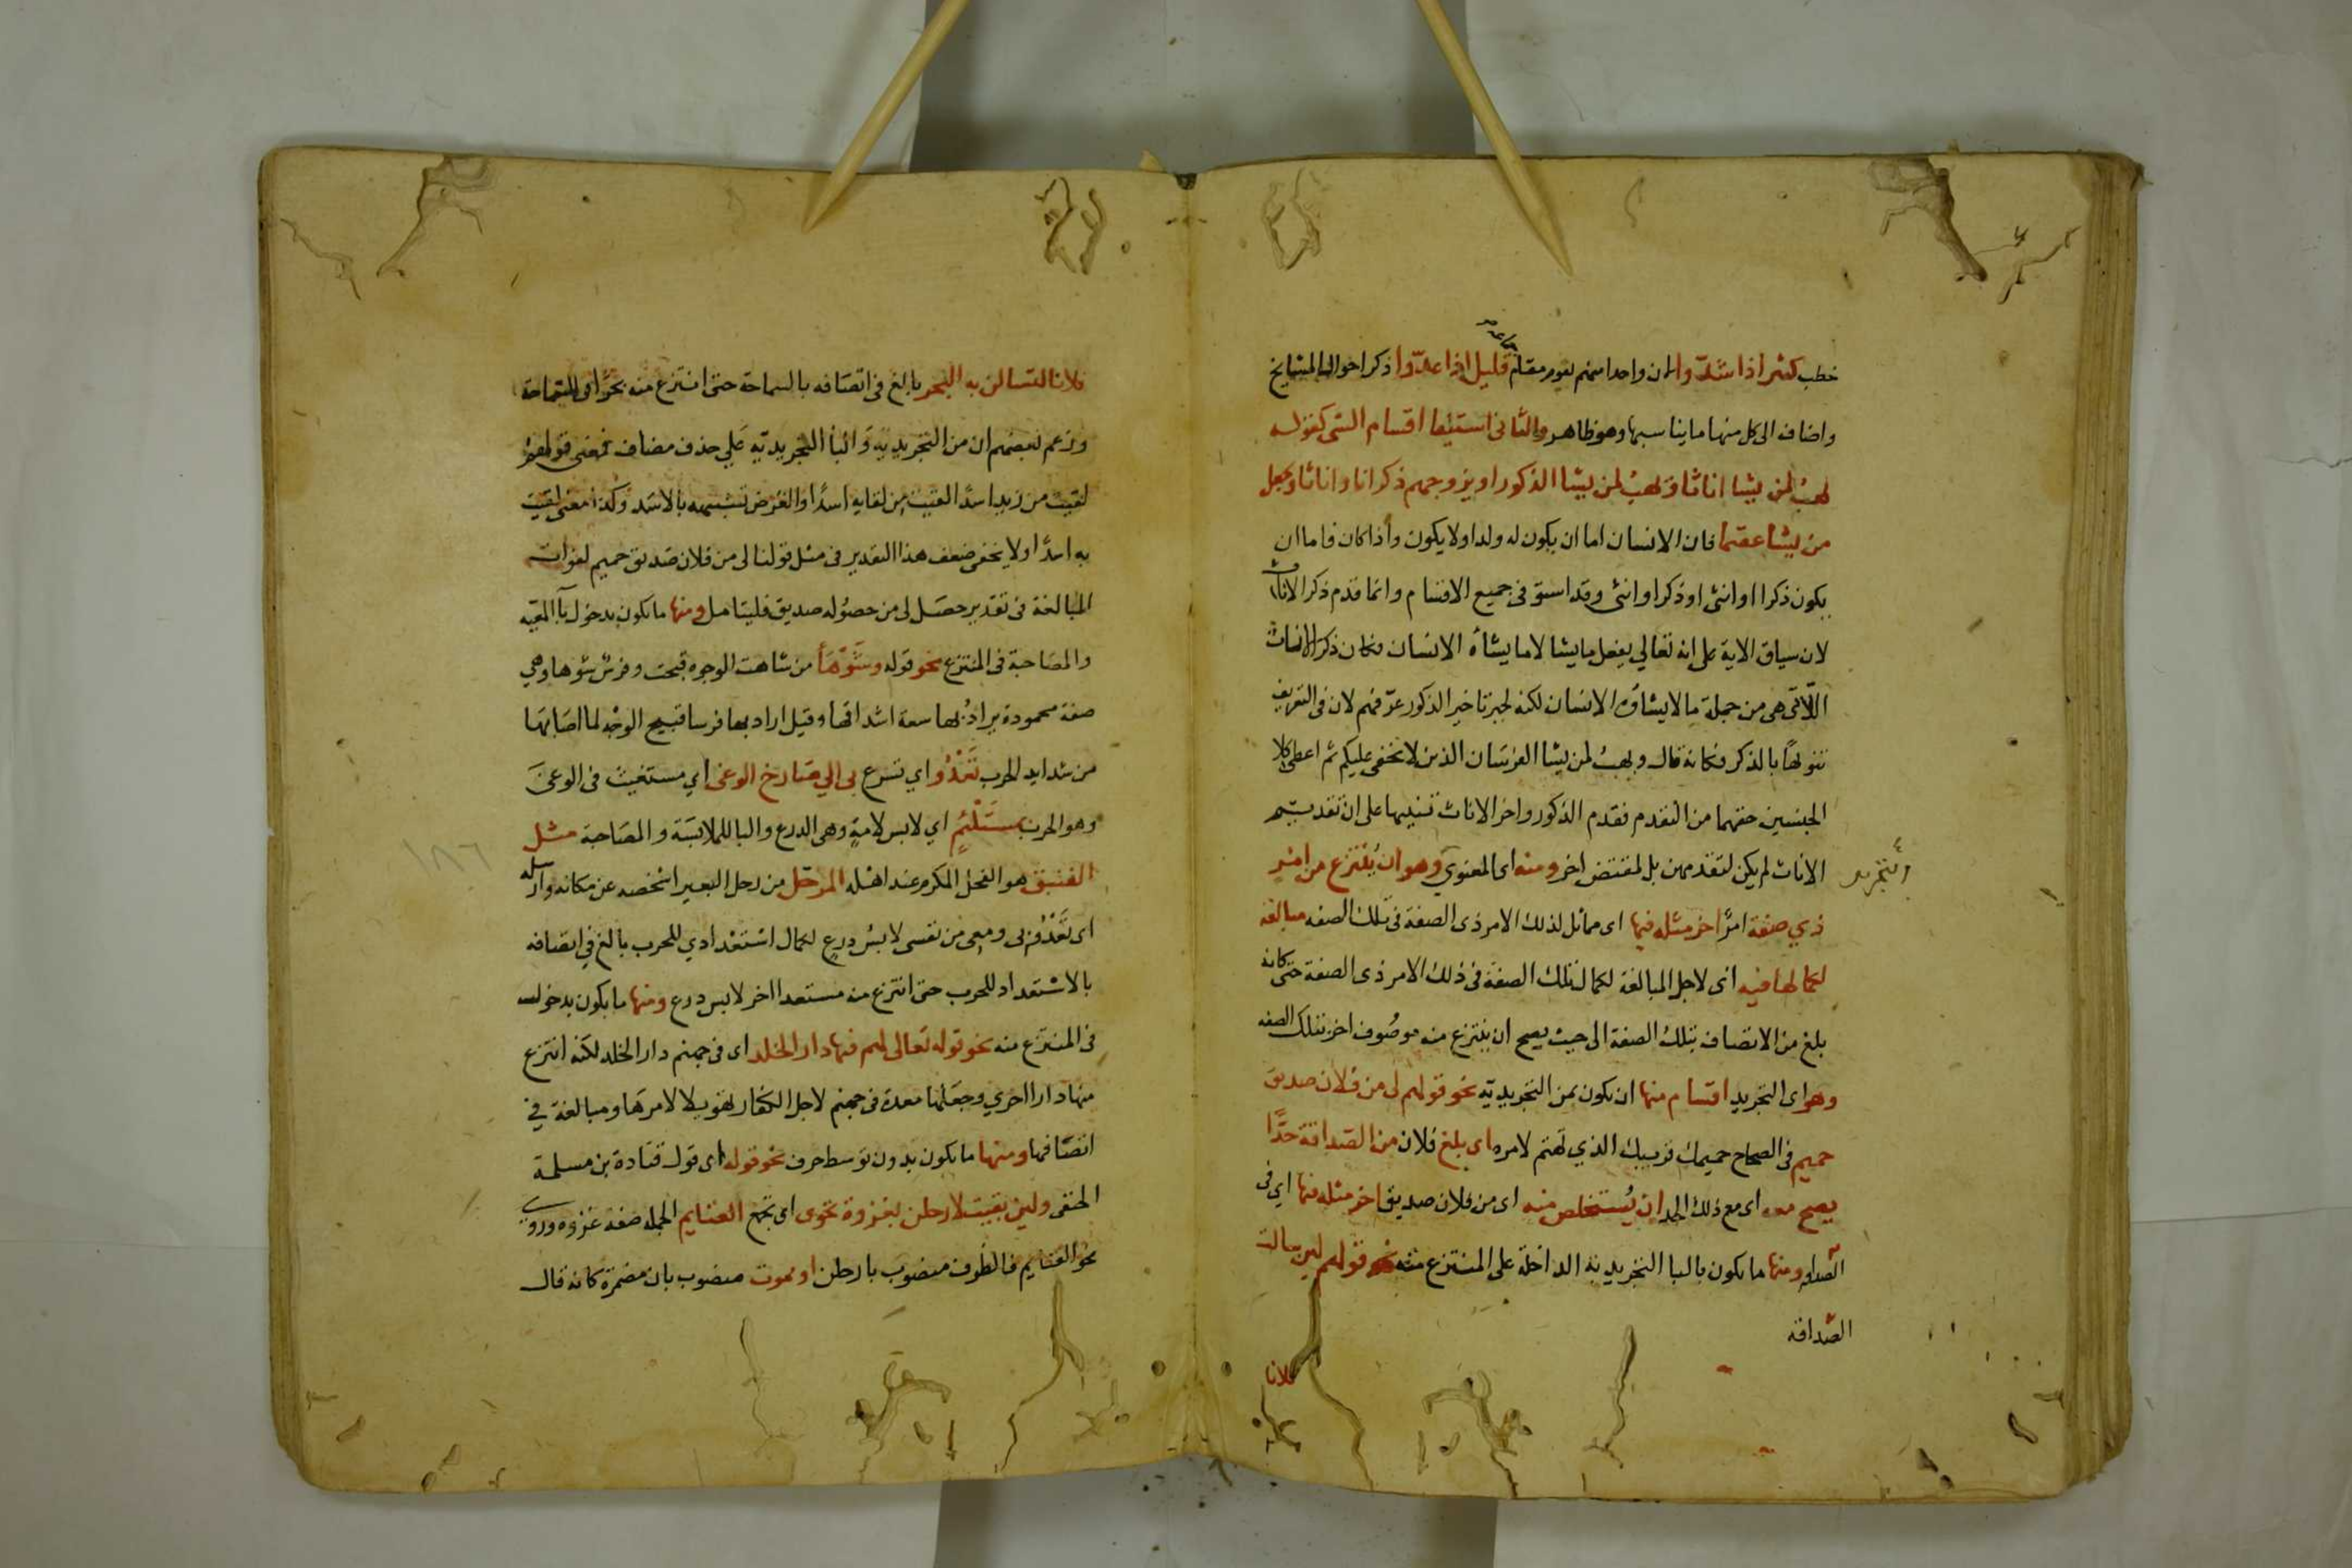 خطب كثير اذا شدّوا لان واحدا منهم يقوم مقام قليل اذا عدّوا ذكر احوال المشايخ
جماعة
واضاف الى كل منها ما يناسبها وهو ظاهر والثانى استيفا اقسام الشى كقوله
يهب لمن يشا اناثا ويهب لمن يشا الذكور او يزوجهم ذكرانا واناثا ويجعل
من يشا عقيما فان الانسان اما ان يكون له ولد او لا يكون واذا كان فاما ان
يكون ذكرا او انثى او ذكرا وانثى وقد استوفى جميع الاقسام وانما قدم ذكر الاناث
لان سياق الاية على انه تعالى يفعل ما يشا لا ما يشاه الانسان فكان ذكر الاناث
اللاتى هى من جملة ما لا يشاؤه الانسان لكنه لجبر تاخير الذكور عرّفهم لان فى التعريف
تنويها بالذكر فكانه قال ويهب لمن يشا الفرسان الذين لا تخفى عليكم ثم اعطى كلا
الجنسين حقهما من التقدم فقدم الذكور واخر الاناث تنبيها على ان تقديم
الاناث لم يكن لتقدمهن بل لمقتض اخر ومنه اى المعنوي وهو ان يُنتزع من امر
التجريد
ذي صفة امرًا اخر مثله فيها اى مماثل لذلك الامر ذى الصفة فى تلك الصفه مبالغة
لكمالها فيه اى لاجل المبالغة لكمال تلك الصفة فى ذلك الامر ذى الصفة حتى كانه
بلغ من الاتصاف بتلك الصفة الى حيث يصح ان ينتزع منه موصوف اخر بتلك الصفه
وهو اى التجريد اقسام منها ان يكون بمن التجريديّه نحو قولهم لى من فلان صديق
حميم فى الصحاح حميمك قريبك الذي تهتم لامره اى بلغ فلان من الصداقة حدًّا
يصح معه اى مع ذلك الحد ان يُستخلص منه اى من فلان صديق اخر مثله فيها اي فى
الصداقه ومنها ما يكون بالبا التجريدية الداخلة على المنتزع منه نحو قولهم لين سالت
الصداقة
فلانا
فلانا لتسالن به البحر بالغ فى اتصافه بالسماحة حتى انتزع منه بحرًا فى السماحة
وزعم بعضهم ان من التجريدية والبا التجريديّه على حذف مضاف فمعنى قولهم
لقيت من زيد اسدًا لقيت من لقايه اسدًا والغرض تشبيهه بالاسد وكذا معنى لقيت
به اسدًا ولا يخفى ضعف هذا التقدير فى مثل قولنا لى من فلان صديق حميم لفوات
المبالغة فى تقدير حصل لى من حصوله صديق فليتامل ومنها ما يكون بدخول باء المعيه
والمصاحبة فى المنتزع نحو قوله وشَوْهَاء من شاهت الوجوه قبحت وفرس شوها وهي
صفة محمودة يراد بها سعة اشداقها وقيل اراد بها فرسا قبيح الوجه لما اصابها
من شدايد الحرب تَعْدُو اي تسرع بى الي صارخ الوغى اي مستغيث فى الوغى
وهو الحرب بمستلئمٍ اي لابس لامة وهى الدرع والبا للملابسة والمصاحبة مثل
الفنيق هو الفحل المكرم عند اهله المرحّل من رحل البعير اشخصه عن مكانه وارسله
اى تعدو بى ومعى من نفسى لابسُ درعٍ لكمال استعدادي للحرب بالغ في اتصافه
بالاستعداد للحرب حتى انتزع منه مستعدا اخر لابس درع ومنها ما يكون بدخول
فى المنتزع منه نحو قوله تعالى لهم فيها دار الخلد اى فى جهنم دار الخلد لكنه انتزع
منها دارا اخري وجعلها معدة فى جهنم لاجل الكفار تهويلا لامرها ومبالغة في
اتصافها ومنها ما يكون بدون توسط حرف نحو قوله اى قول قتادة بن مسلمة
الحنفى ولين بقيت لارحلن بغزوة تحوى اى تجمع الغنايم الجمله صفة غزوه وروي
نحو الغنايم فالظرف منصوب بارحلن او يموت منصوب بان مضمرة كانه قال
١٨٦